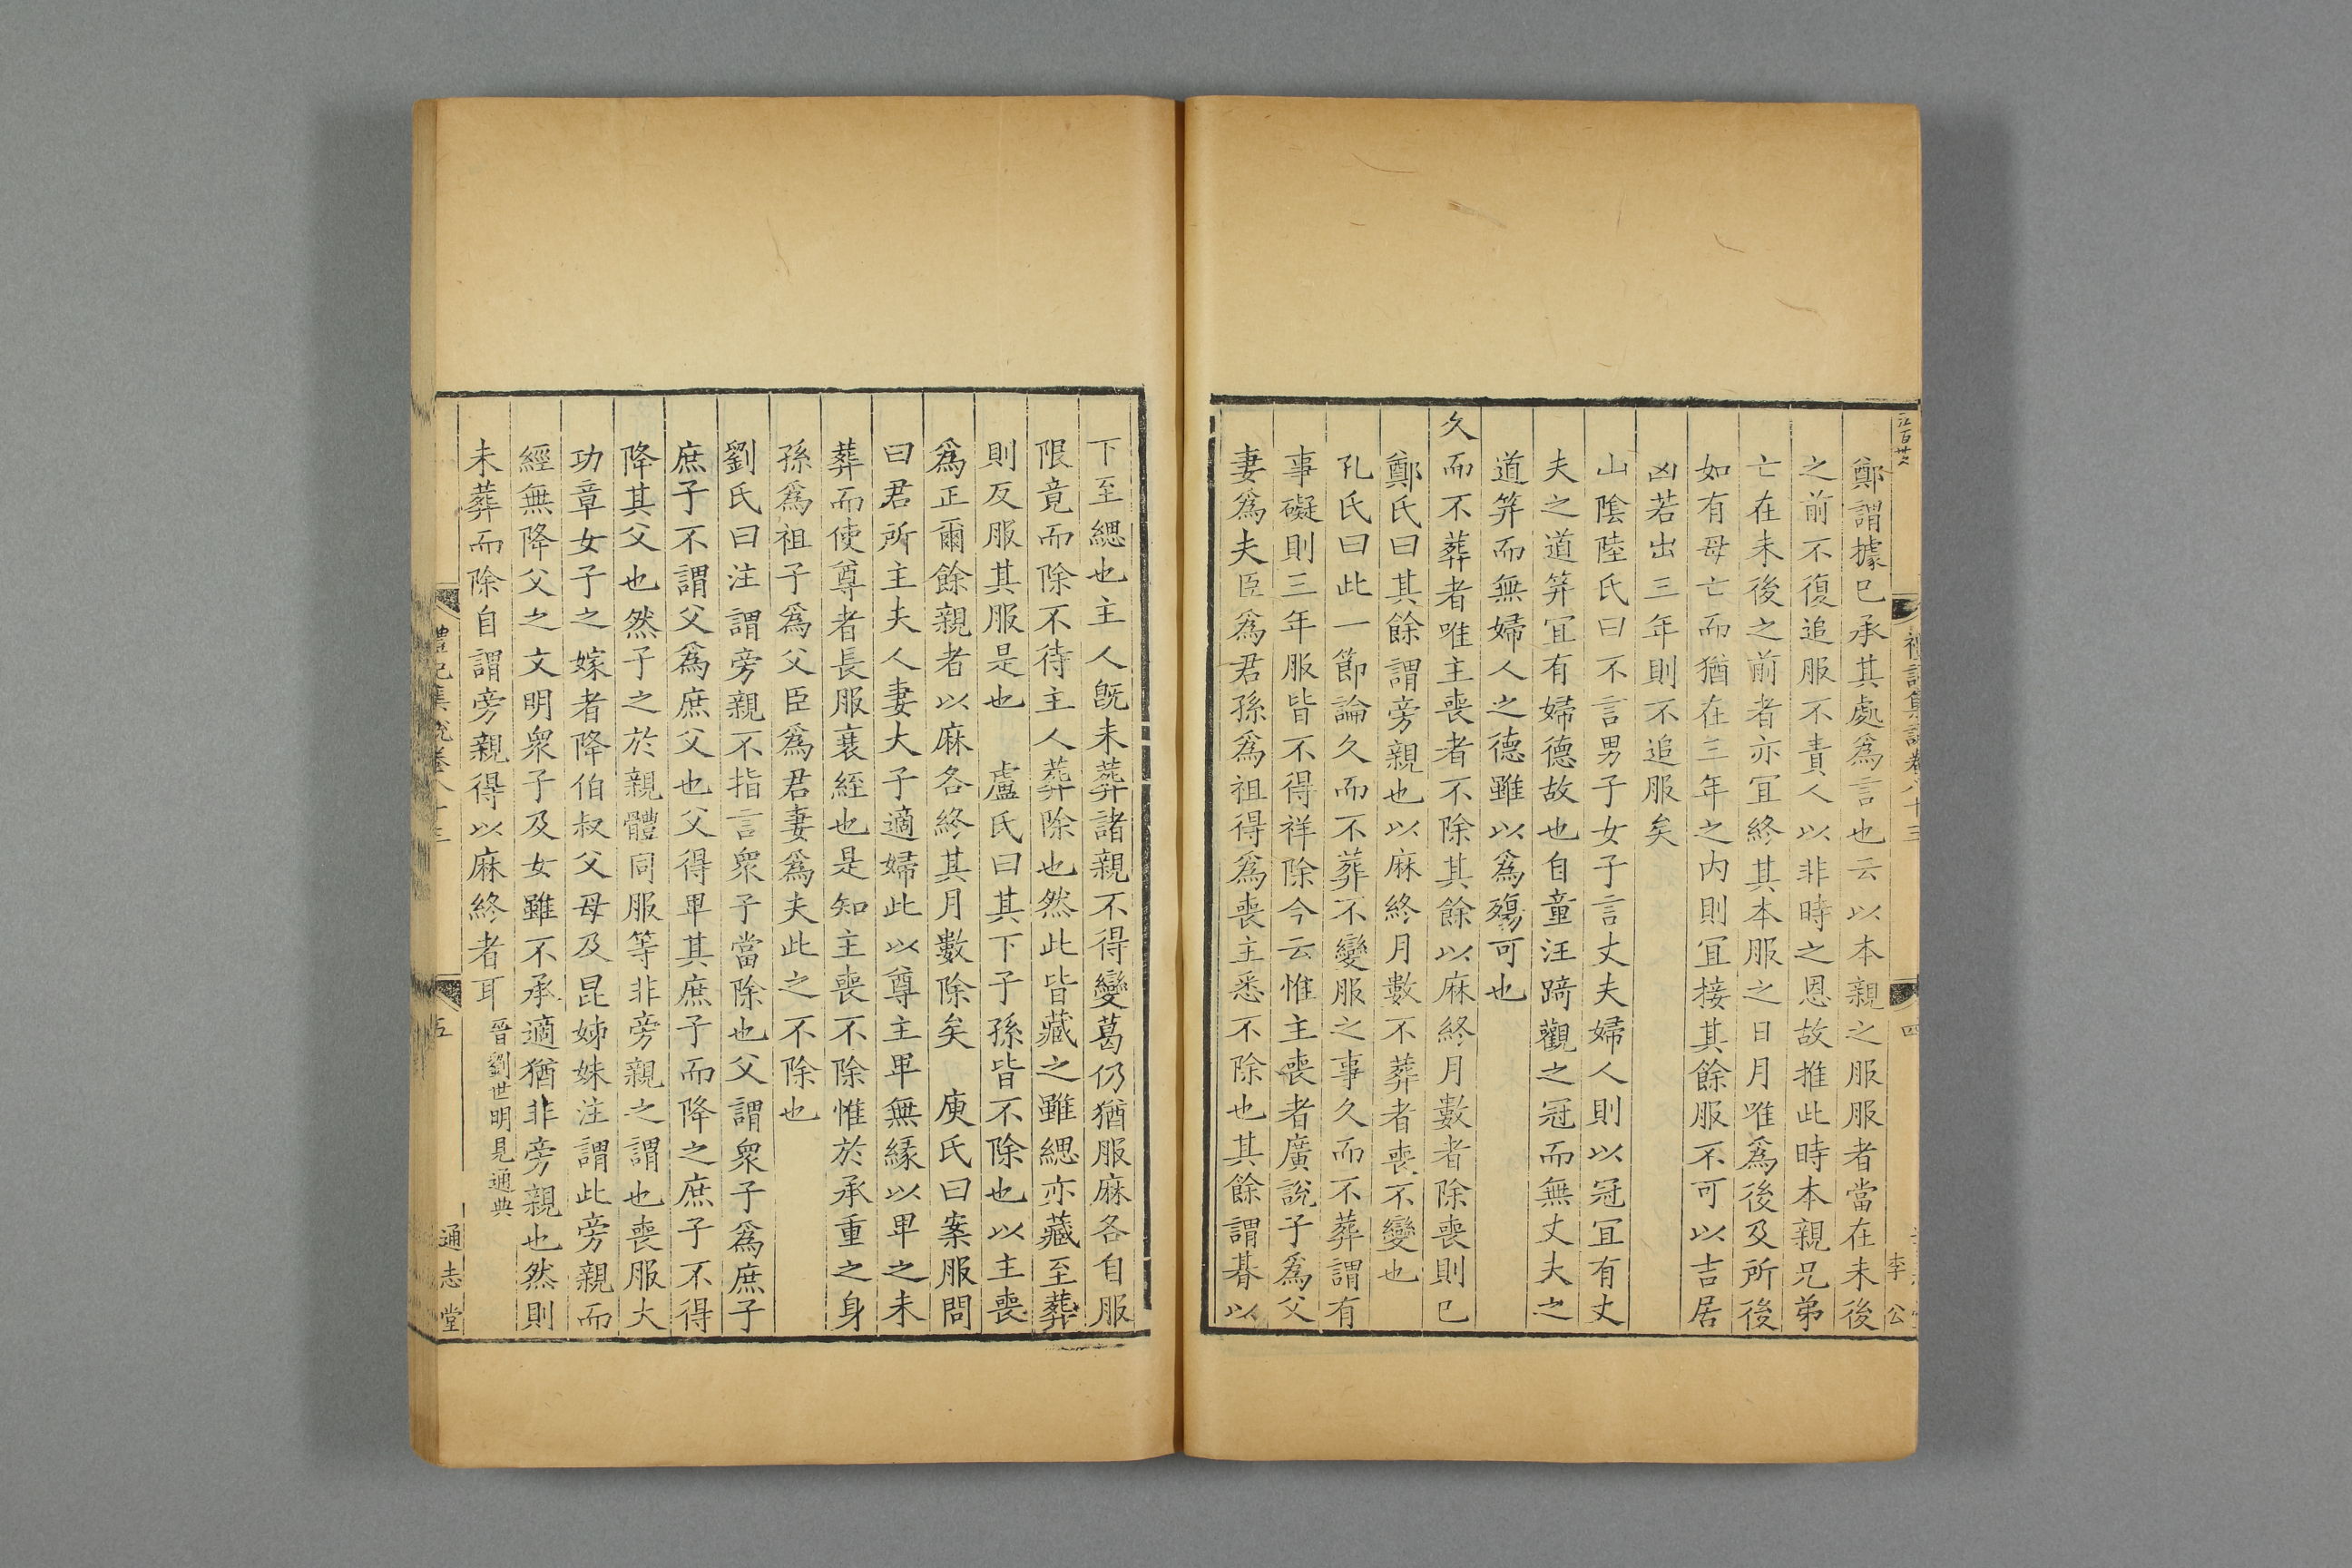 鄭謂據已承其處爲言也云以本親之服服者當在未後
之前不復追服不責人以非時之恩故推此時本親兄弟
亡在未後之前者亦宜終其本服之日月唯爲後及所後
如有母亡而猶在三年之内則宜接其餘服不可以吉居
凶若出三年則不追服矣
山陰陸氏曰不言男子女子言丈夫婦人則以冠宜有丈
夫之道笄宜有婦德故也自童汪踦觀之冠而無丈夫之
道笄而無婦人之德雖以爲殤可也
久而不葬者唯主喪者不除其餘以麻終月數者除喪則已
鄭氏曰其餘謂旁親也以麻終月數不葬者喪不變也
孔氏曰此一節論久而不葬不變服之事久而不葬謂有
事礙則三年服皆不得祥除今云惟主喪者廣說子爲父
妻爲夫臣爲君孫爲祖得爲喪主悉不除也其餘謂朞以
下至緦也主人旣未葬諸親不得變葛仍猶服麻各自服
限竟而除不待主人葬除也然此皆藏之雖緦亦藏至葬
則反服其服是也　盧氏曰其下子孫皆不除也以主喪
爲正爾餘親者以麻各終其月數除矣　庾氏曰案服問
曰君所主夫人妻大子適婦此以尊主卑無緣以卑之未
葬而使尊者長服衰絰也是知主喪不除惟於承重之身
孫爲祖子爲父臣爲君妻爲夫此之不除也
劉氏曰注謂旁親不指言衆子當除也父謂衆子爲庶子
庶子不謂父爲庶父也父得卑其庶子而降之庶子不得
降其父也然子之於親體同服等非旁親之謂也喪服大
功章女子之嫁者降伯叔父母及昆姊妹注謂此旁親而
經無降父之文明衆子及女雖不承適猶非旁親也然則
未葬而除自謂旁親得以麻終者耳晉劉世明見通典
禮記集說卷八十三
五
通志堂
禮記集說卷八十三
四
李公